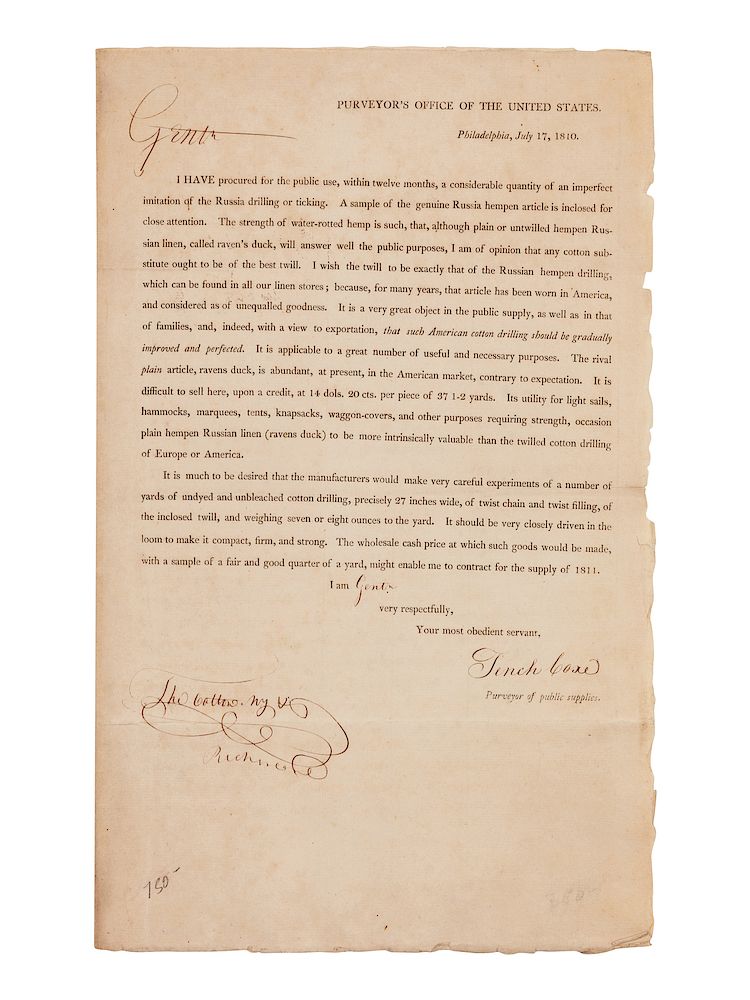 PURVEYOR'S OFFICE OF THE UNITED STATES.
Gentn
Philadelphia, July 17, 1810.
I HAVE procured for the public use, within twelve months, a considerable quantity of an imperfect
imitation of the Russia drilling or ticking. A sample of the genuine Russia hempen article is inclosed for
close attention. The strength of water-rotted hemp is such, that, although plain or untwilled hempen Rus-
sian linen, called raven's duck, will answer well the public purposes, I am of opinion that any cotton sub-
stitute ought to be of the best twill. I wish the twill to be exactly that of the Russian hempen drilling,
which can be found in all our linen stores; because, for many years, that article has been worn in America,
and considered as of unequalled goodness. It is a very great object in the public supply, as well as in that
of families, and, indeed, with a view to exportation, that such American cotton drilling should be gradually
improved and perfected. It is applicable to a great number of useful and necessary purposes. The rival
plain article, ravens duck, is abundant, at present, in the American market, contrary to expectation. It is
difficult to sell here, upon a credit, at 14 dols. 20 cts. per piece of 37 1-2 yards. Its utility for light sails,
hammocks, marquees, tents, knapsacks, waggon-covers, and other purposes requiring strength, occasion
plain hempen Russian linen (ravens duck) to be more intrinsically valuable than the twilled cotton drilling
of Europe or America.
It is much to be desired that the manufacturers would make very careful experiments of a number of
yards of undyed and unbleached cotton drilling, precisely 27 inches wide, of twist chain and twist filling, of
the inclosed twill, and weighing seven or eight ounces to the yard. It should be very closely driven in the
loom to make it compact, firm, and strong. The wholesale cash price at which such goods would be made,
with a sample of a fair and good quarter of a yard, might enable me to contract for the supply of 1811.
I am Gentn
very respectfully,
Your most obedient servant,
Tench Coxe
Purveyor of public supplies.
The Cotton
Richmond
150